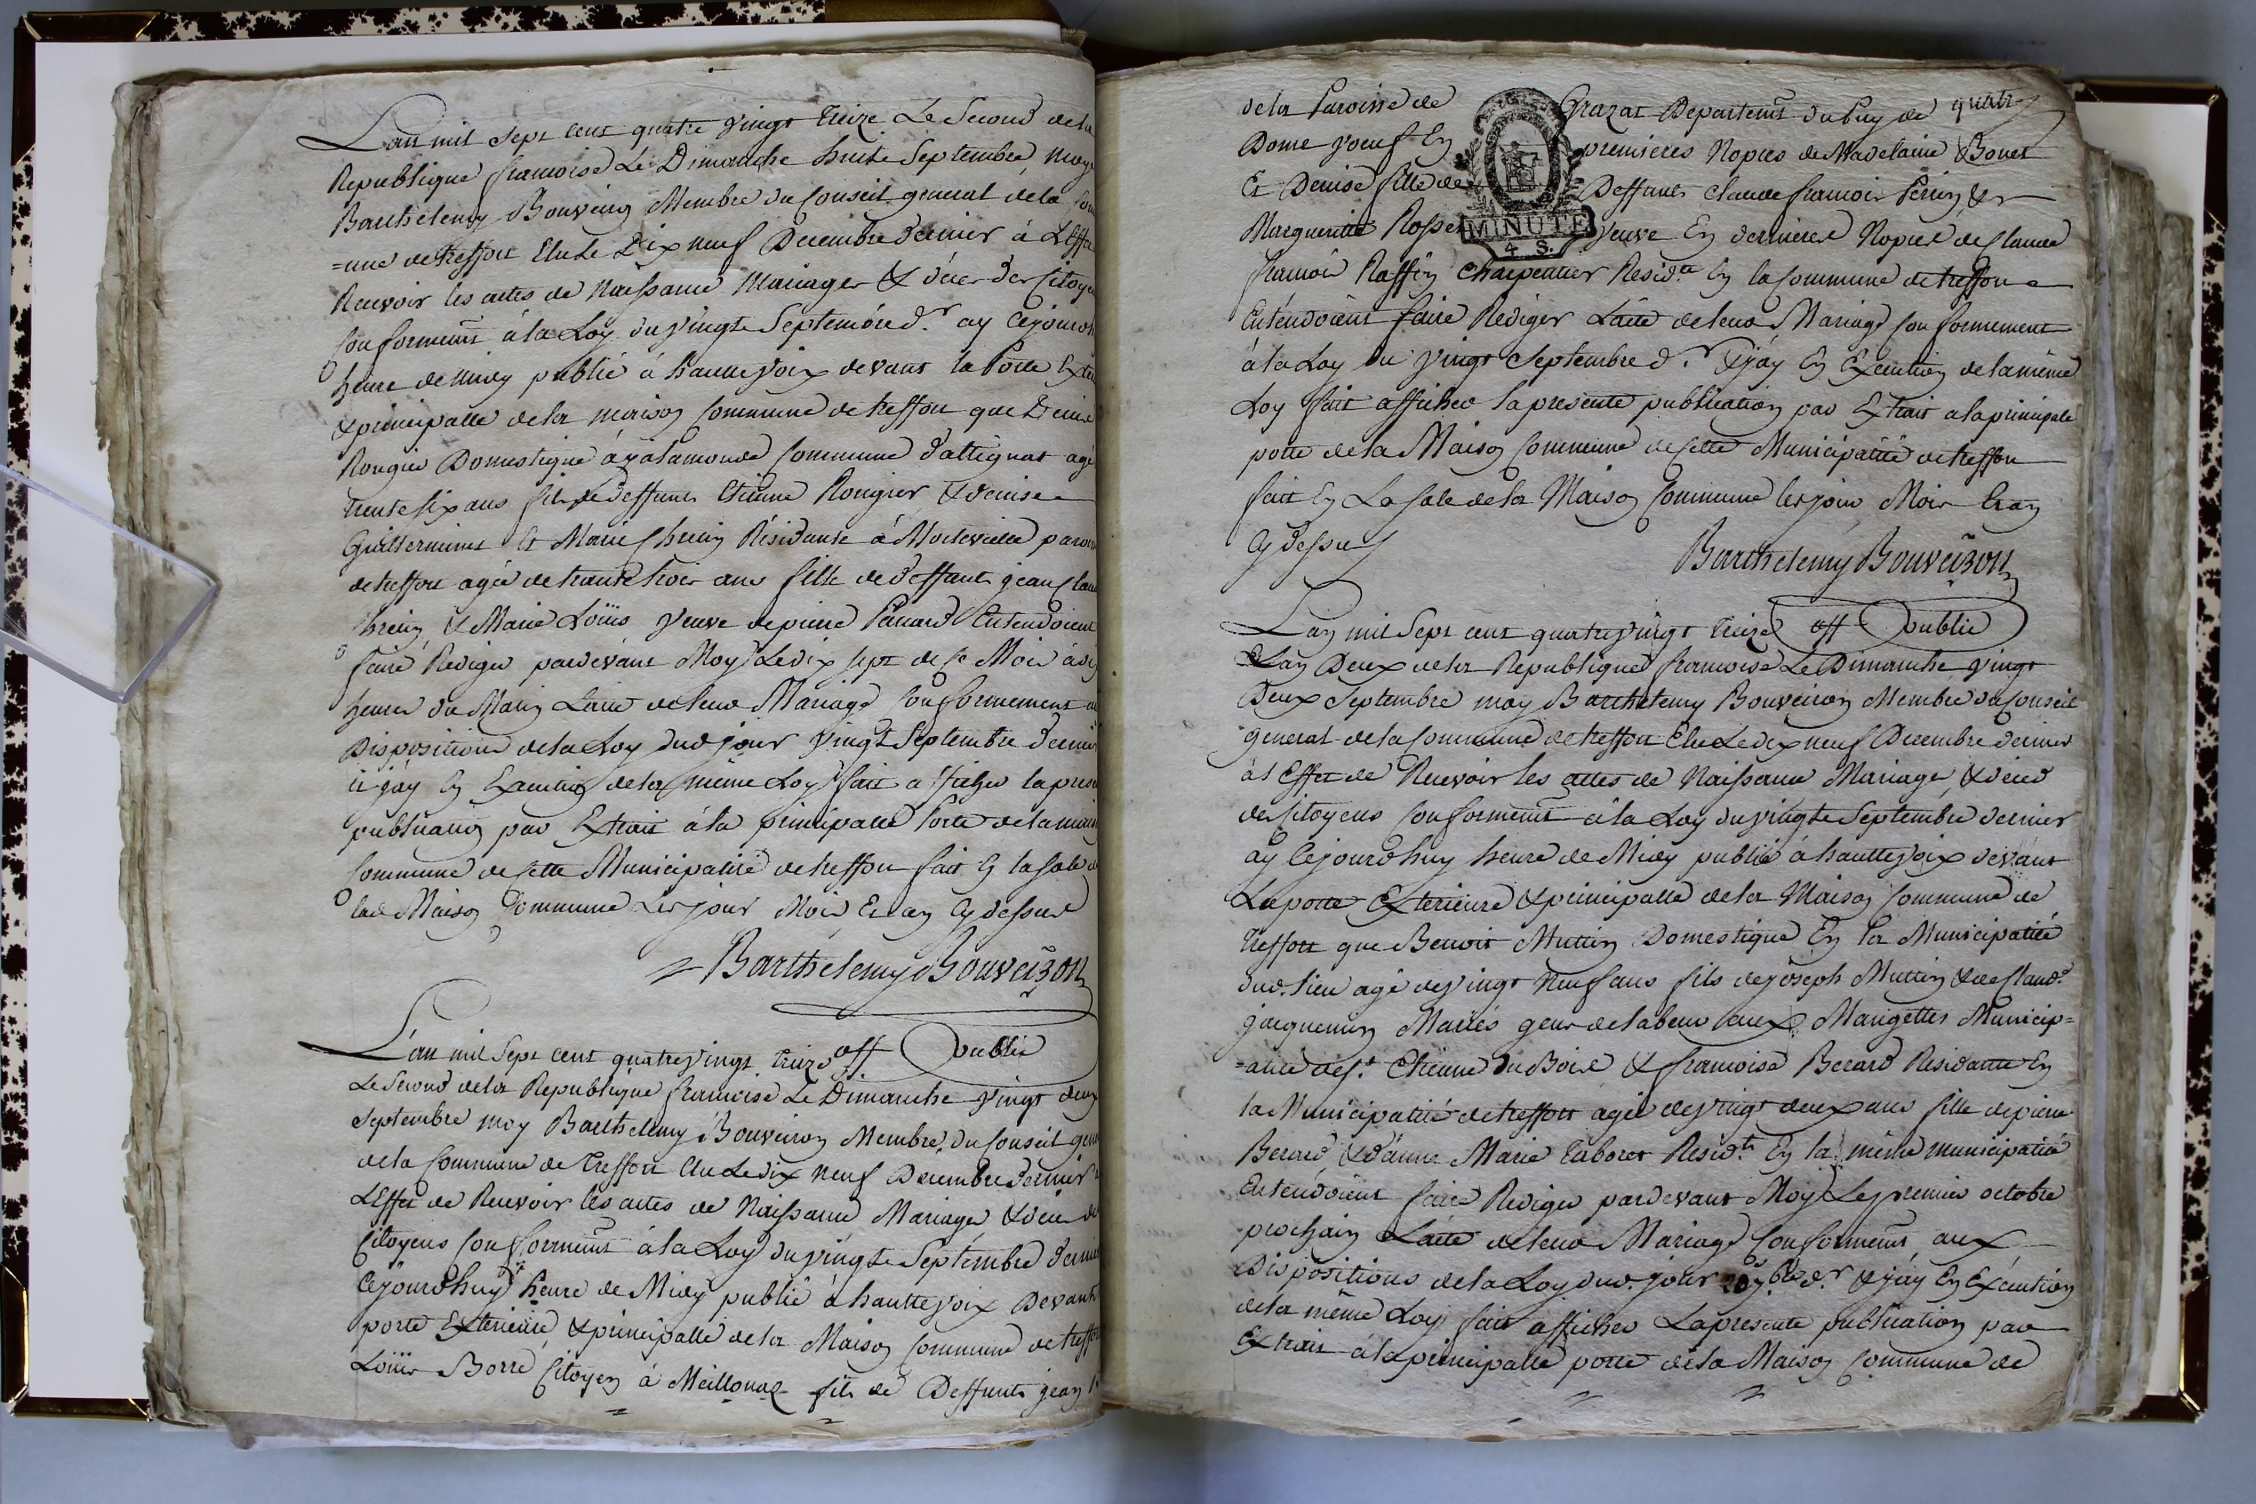 L'an mil sept cent quatre vingt treize Le Second de la
Republique francoise Le Dimanche huite Septembre, moy
Barthelemy Bouveiron Membre du Conseil general de la
=une de treffort Elu Le Dix neuf Decembre dernier à L'Effe
Recevoir les actes de Naissance Mariages & décès des Citoye
Conformemt à la Loy du Vingte Septembre dr. ay Cejourdh
heure de Midy publié à haute Voix devant la Porte Exte
& principalle de la maison Commune de treffort que Denis
Rougier Domestique à Commune d'attignat agé
trente six ans fils de deffunts Etienne Rougier & denise
Guillerminet Et Marie threin Résidante à Montevielle paroi
de treffort agée de trante trois ans fille de deffunts jean Clau
threin & Marie Loüis Veuve de pierre Panard Entendoient
faire Rediger pardevant Moy Le dix sept de Ce Mois à dix
heures du Matin L'acte de leur Mariage Conformement a
Dispositions de la Loy dud jour Vingt Septembre dernier
& j'ay En Execution de la même Loy fait afficher la prese
publication par Extrait à la principalle Porte de la maiso
Commune de Cette Municipalité de treffort fait En la sale d
lad Maison Commune Les jour Mois Et an Cy dessus
Barthelemy Bouveiron
L'an mil Sept cent quatre Vingt treize aff. Publié
Le Second de la Republique francoise Le Dimanche Vingt deux
Septembre moy Barthelemy Bouveiron Membre du Conseil gen
de la Commune de Treffort Elu Le dix neuf Decembre dernier
L'Effet de Recevoir les actes de Naissance Mariages & décès de
Citoyens Conformemt à la Loy du Vingte Septembre dernier
Cejourdhuy heure de Midy publié à hautte Voix Devant
porte Exterieure & principalle de la Maison Commune de treffort
Loüis Borre Citoyen à Meillonaz fils de Deffunts jean
de la Paroisse de Grazat Departemt du Puy de
Dome Voeuf En premieres Nopces de Madelaine Bonet
Et Denise fille de Deffunts Claude francois Perin &
Marguerite Rosset Veuve En dernieres Nopces de Claude
francois Raffin Charpentier Residte En la Commune de treffort
Entendoient faire Rediger L'acte de leur Mariage Conformement
à la Loy du Vingt Septembre dr. & j'ay En Execution de la même
Loy fait afficher la presente publication par Extrait a la principale
potte de la Maison Commune de Cette Municipalité de treffort
fait En La Sale de la Maison Commune les jour Mois Et an
Cy dessus
Barthelemy Bouveiron
L'an mil Sept cent quatre Vingt treize aff Publié
L'an Deux de la Republique francoise Le Dimanche Vingt
Deux Septembre moy Barthelemy Bouveiron Membre du Conseil
general de la Commune de treffort Elu Le dix neuf Decembre dernier
à l'Effet de Recevoir les actes de Naissance Mariage, & décès
des Citoyens Conformemt à la Loy du Vingte Septembre dernier
ay Cejourdhuy heure de Midy publié à hautte Voix devant
La potte Exterieure & principalle de la Maison Commune de
treffort que Benoit Muttin Domestique En la Municipalité
dud. lieu agé de Vingt Neuf ans fils de joseph Muttin & de Claude
jacquemin Mariés gens de labeur aux Mangettes Municip=
=alité de St. Etienne du Bois & francoise Berard Residante En
la Municipalité de treffort agée de Vingt deux ans fille de pierre
Berard & d'anne Marie taboret Residts En la même municipalité
Entendoient faire Rediger pardevant Moy Le premier octobre
prochain L'acte de leur Mariage Conformemt aux
Dispositions de la Loy dud. jour 20 7bre dr. & j'ay En Execution
de la même Loy fait afficher La presente publication par
Extrait à la principalle potte de la Maison Commune de
MINUTE
4 S.